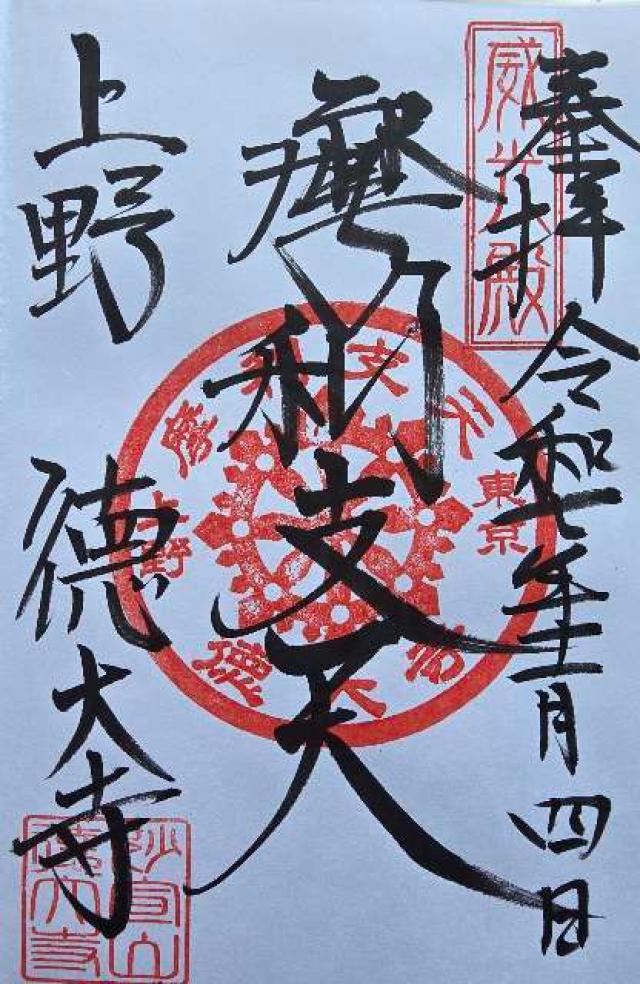 奉拝 令和七年十一月四日
威光殿
摩利支天
摩利支天
東京
上野
徳大寺
上野 徳大寺
妙宣山
徳大寺